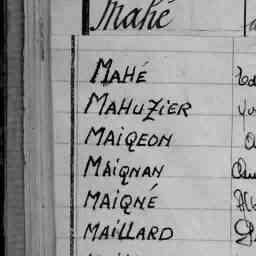 Mahé
MAHÉ
MAHUZIER
MAIGEON
MAIGNAN
MAIGNÉ
MAILLARD